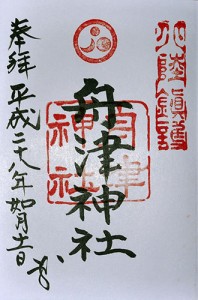 北陸鎮護
舟津神社
舟津
神社
奉拝 平成二十八年 如月十一日